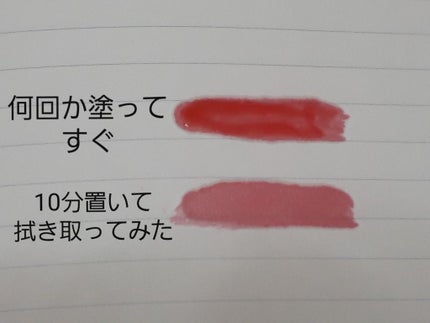 何回か塗って
すぐ
10分置いて
拭き取ってみた